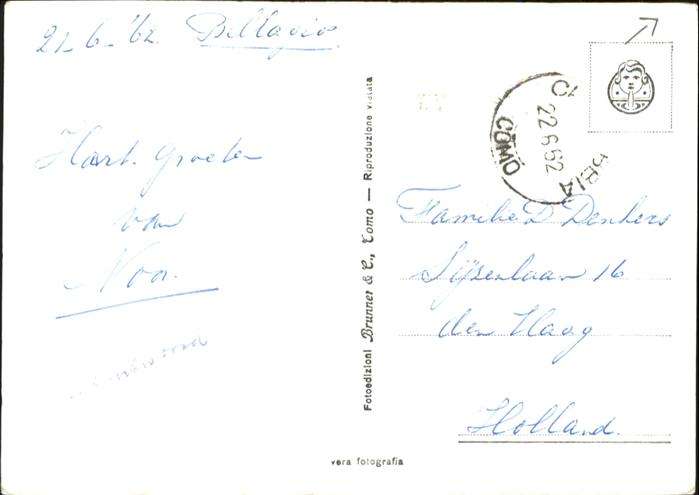 21-6-'62. Bellagio.
Hart. groeten
van
Noor.
Fotoedizioni Brunner & C., Como — Riproduzione vietata
COMO
22.6.62
Familie D. Denkers
16
den Haag
Holland.
vera fotografia